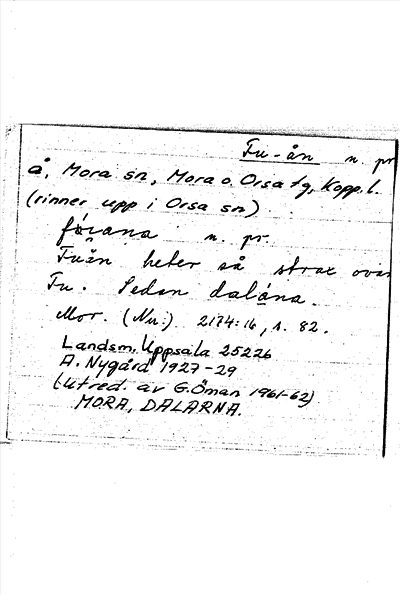 Fu-ån n. pr
å, Mora sn, Mora o. Orsa tg, Kopp. l.
(rinner upp i Orsa sn)
n. pr.
Fuån heter så strax ovan
Fu. Sedan dalána.
Mor. (Nu:) 2174:16, s. 82.
Landsm. Uppsala 25226
A. Nygård 1927-29
(utred. av G. Öman 1961-62)
MORA, DALARNA.